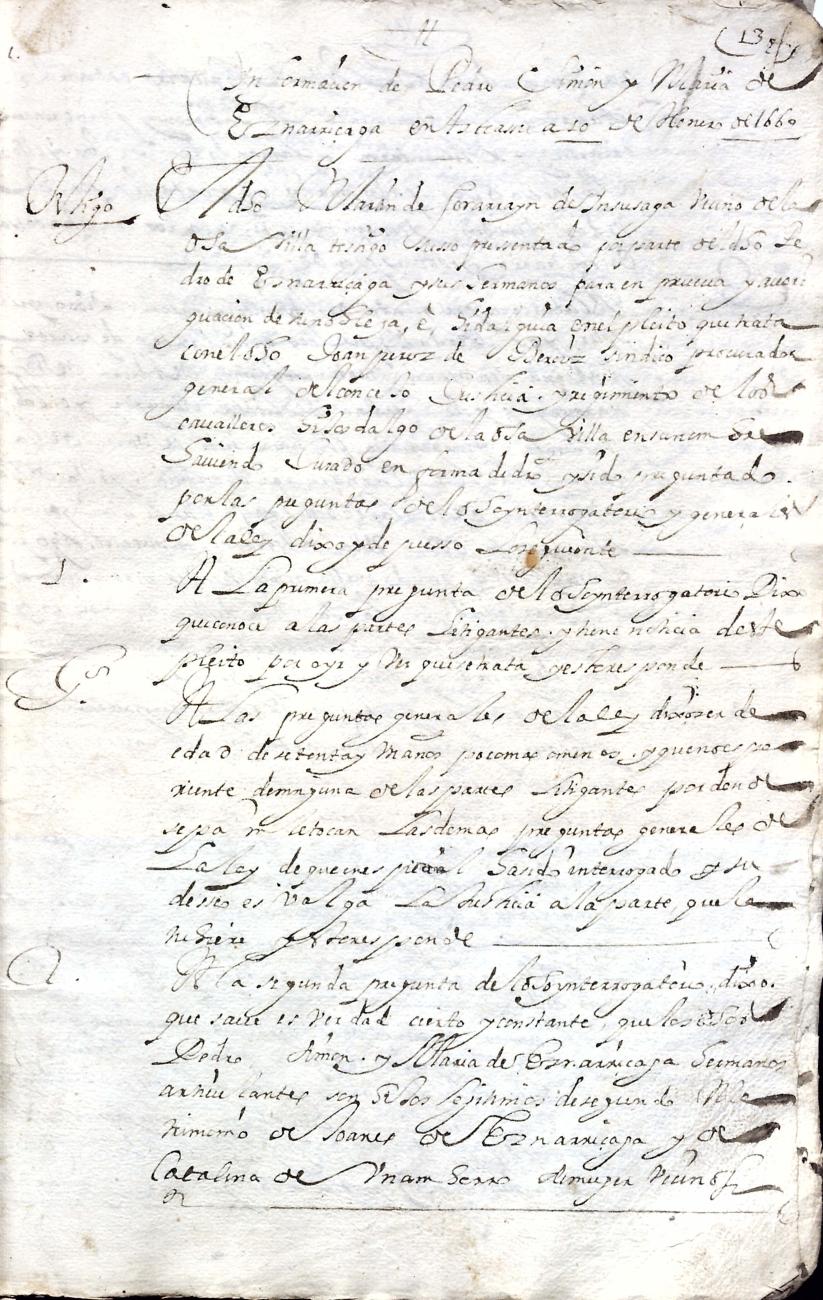 13
Informacion de Pedro Simon y Maria de
Eznarriçaga en Azcoasu a 10 de Henero de 1660
Testigo
El dho Martin de de Insusaga vecino de la
dha Villa testigo susso presentado por parte del dho Pe
dro de Eznarriçaga y sus hermanos para en prueva y averi
guacion de su nobleza, è, hidalguia en el pleito que trata
con el dho Joan perez de sindico procurador
general del concejo Justicia y regimiento de los
cavalleros hijosdalgo de la dha Villa en su nombre
Haviendo Jurado en forma de dro y sido preguntado
por las preguntas del dho ynterrogatorio y generales
de la ley dixo y depusso Lo siguiente
1. A La primera pregunta del dho ynterrogatorio Dixo
que conoce a las partes Litigantes y tiene noticia deste
pleito por oyr y ver que se trata y esto responde
A Las preguntas generales de la ley dixo ser de
edad de setenta y años poco mas o menos y que no es pa
riente de ninguna de las partes Litigantes por donde
sepa ni le tocan Las demas preguntas generales de
La ley de que en especial ha sido interrogado y su
desseo es Valga La Justicia a la parte que la
tubiere y esto responde
2. A la segunda pregunta del dho ynterrogatorio, dixo
que save es verdad cierto y constante, que los dhos
Pedro Simon y Maria de Eznarriçaga hermanos
articulantes son hijos legitimos de segundo Ma
trimonio de Joanes de Eznarriçaga y de
Catalina de su muger vecinos